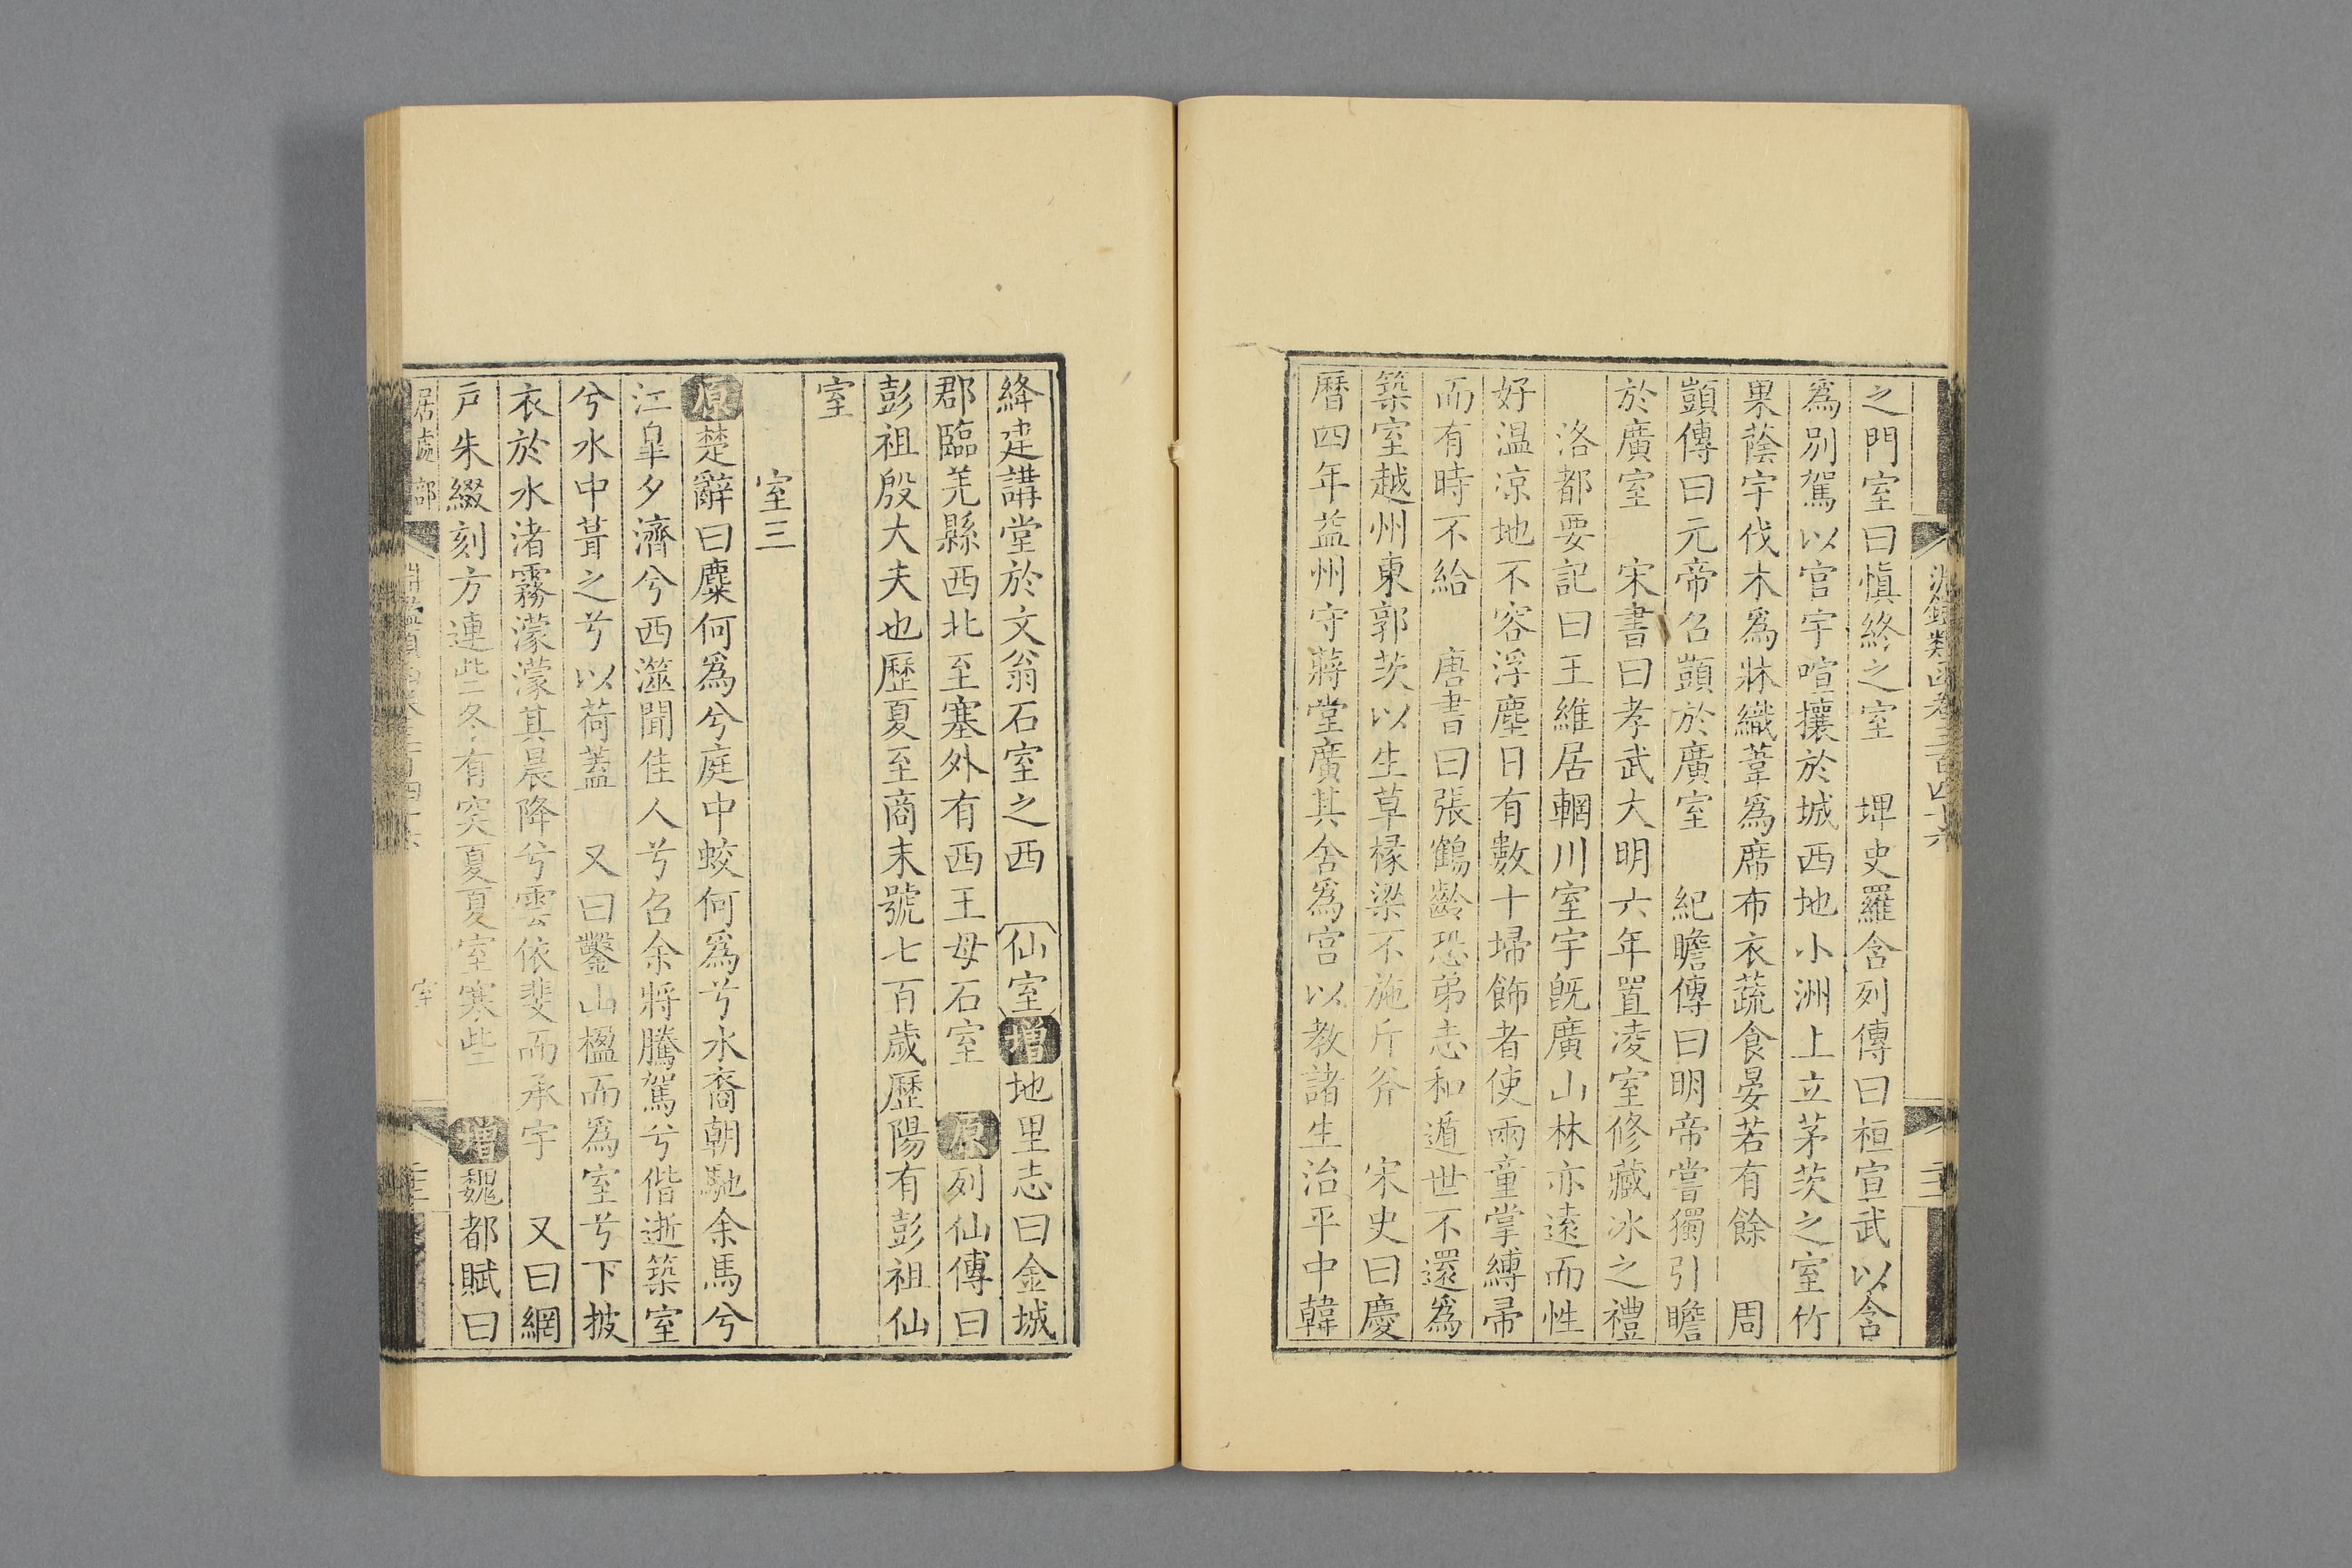 之門室曰慎終之室　埤史羅含列傳曰桓宣武以含
為別駕以官宇喧攘於城西地小洲上立茅茨之室竹
果蔭宇伐木為牀織葦為席布衣蔬食晏若有餘　周
顗傳曰元帝召顗於廣室　紀瞻傳曰明帝嘗獨引瞻
於廣室　宋書曰孝武大明六年置凌室修藏冰之禮
洛都要記曰王維居輞川室宇旣廣山林亦遠而性
好温凉地不容浮塵日有數十埽飾者使兩童掌縛帚
而有時不給　唐書曰張鶴齡恐弟志和遁世不還爲
築室越州東郭茨以生草椽梁不施斤斧　宋史曰慶
曆四年益州守蔣堂廣其舍爲宫以教諸生治平中韓
絳建講堂於文翁石室之西　仙室增地里志曰金城
郡臨羌縣西北至塞外有西王母石室　原列仙傳曰
彭祖殷大夫也歷夏至商末號七百歲歷陽有彭祖仙
室
室三
原楚辭曰麋何爲兮庭中蛟何爲兮水裔朝馳余馬兮
江皐夕濟兮西澨聞佳人兮召余將騰駕兮偕逝築室
兮水中葺之兮以荷蓋　又曰鑿山楹而爲室兮下披
衣於水渚霧濛濛其晨降兮雲依斐而承宇　又曰網
戸朱綴刻方連些冬有突夏夏室寒些　增魏都賦曰
居處部
室